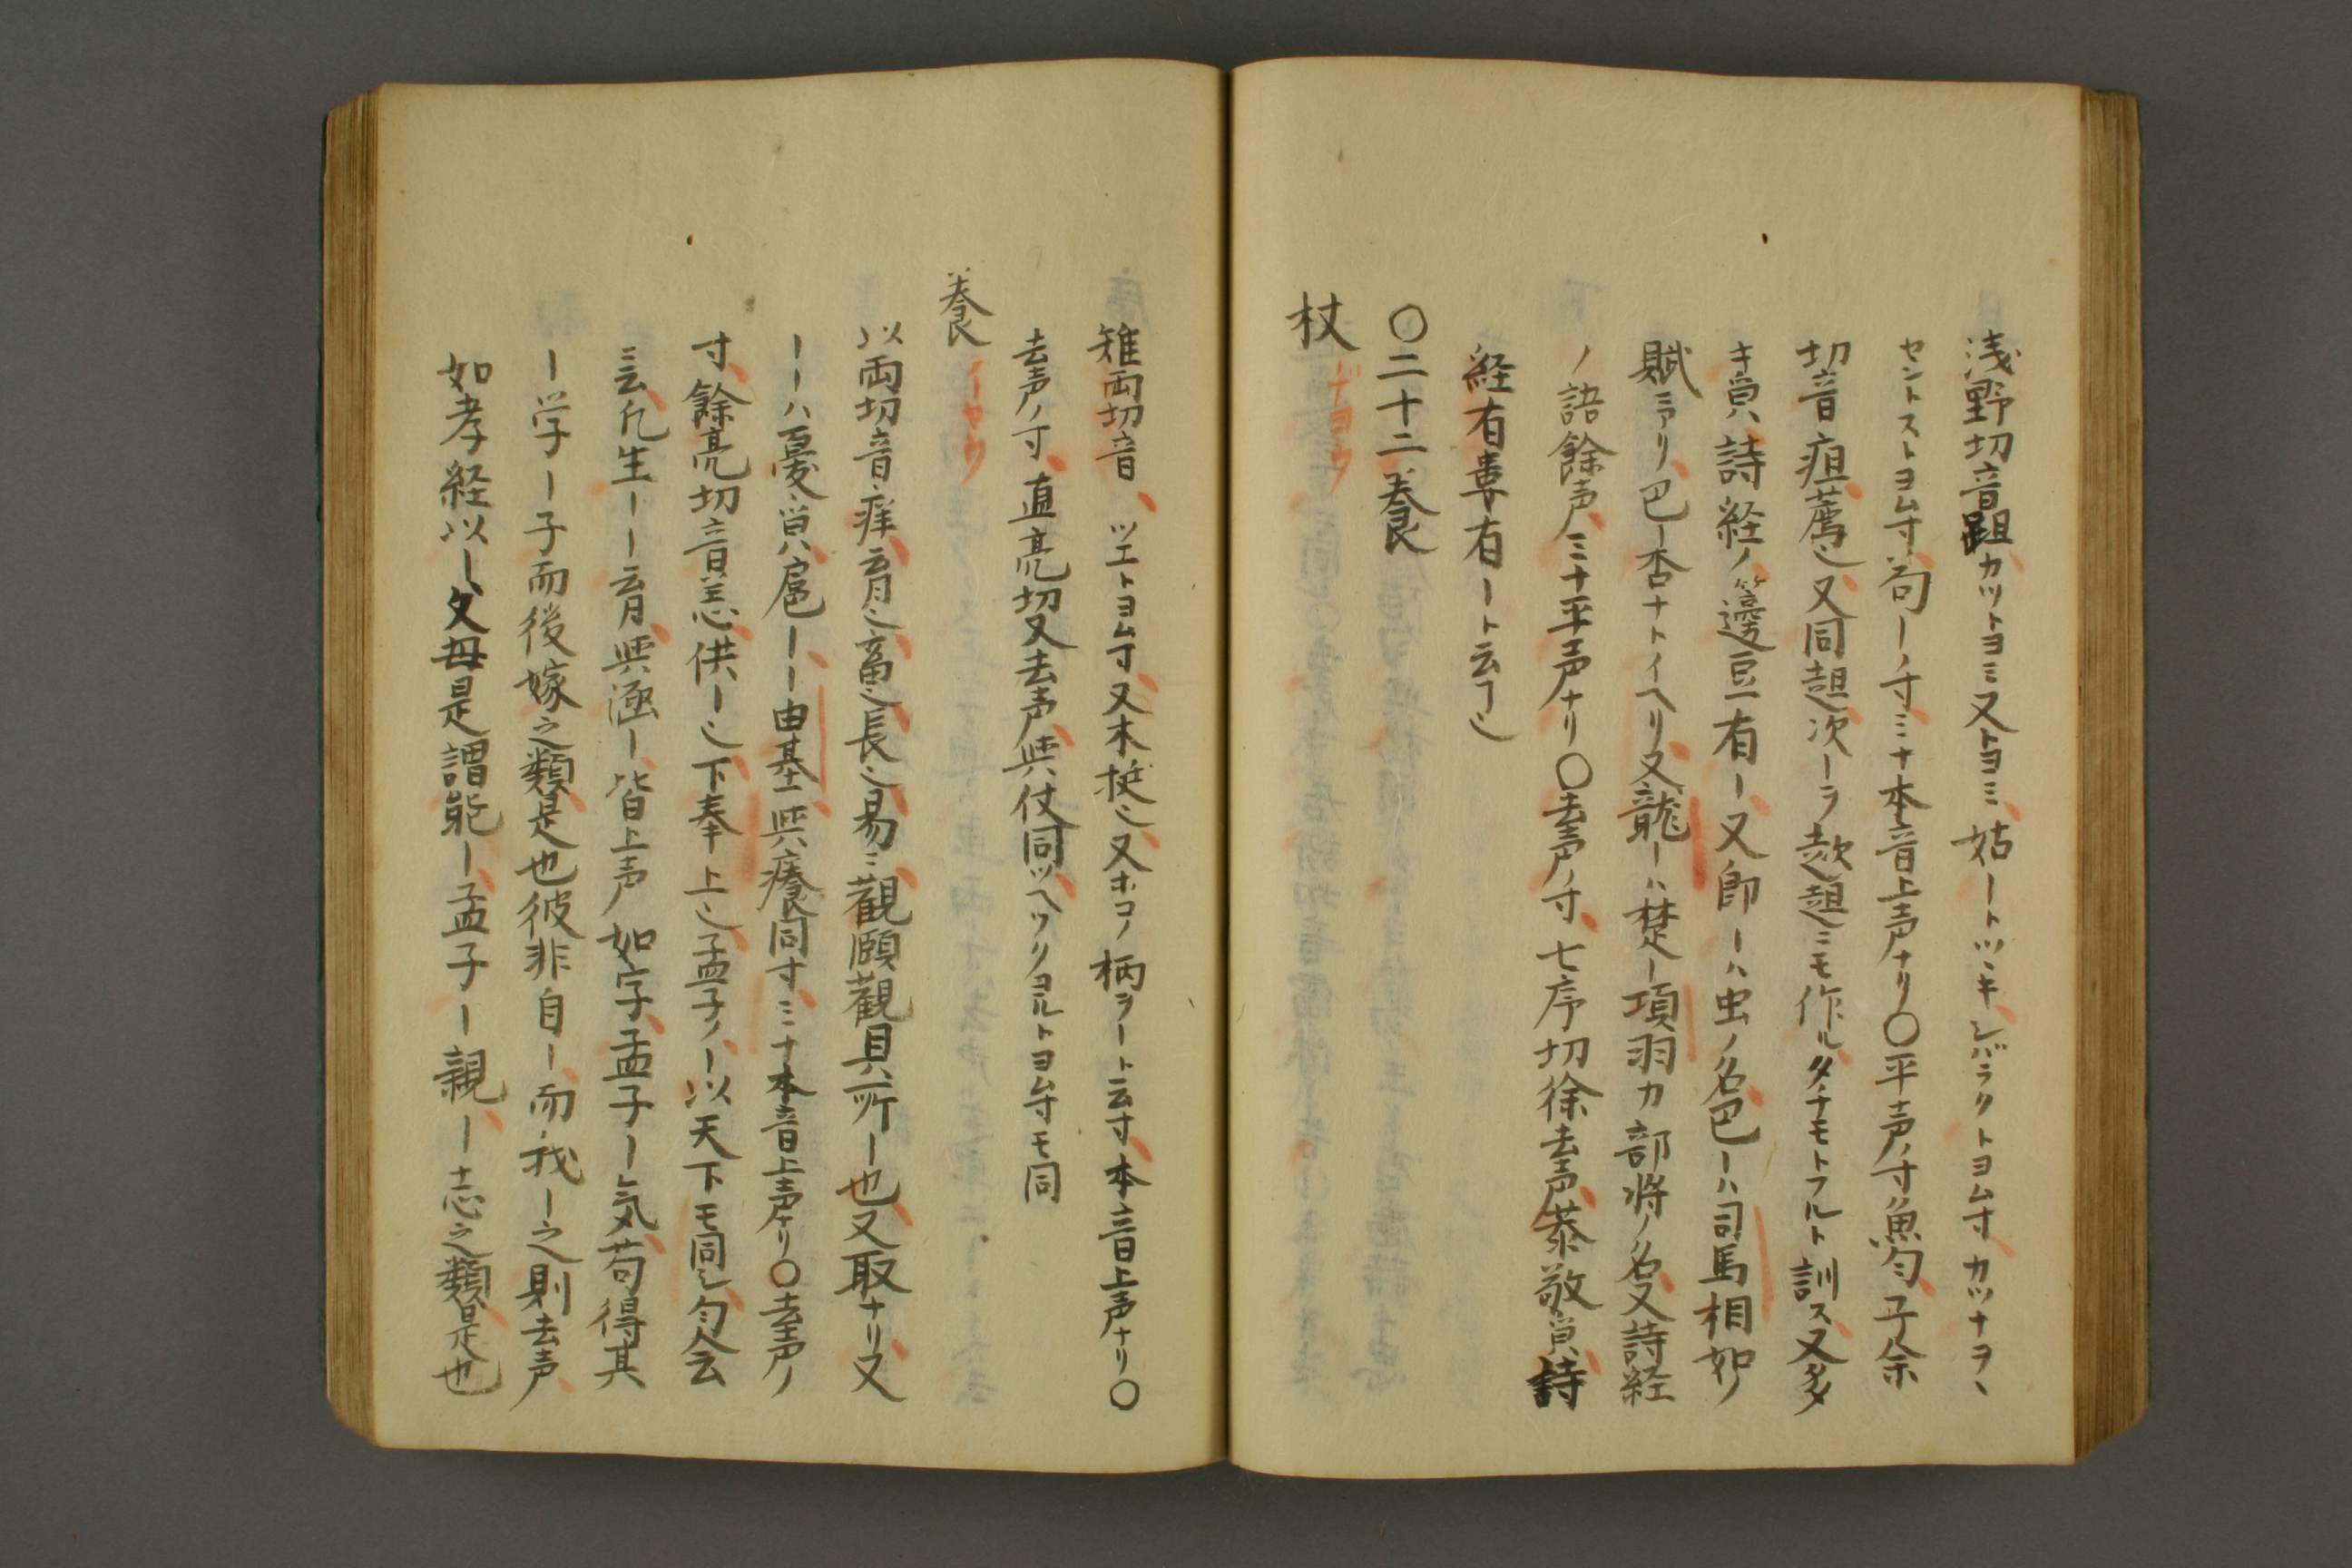 浅野切音跙カツトヨミ又トヨミ姑ートツヾキシバラクトヨム寸カツナヲヽ
セントストヨム寸苟ーノ寸ミナ本音上声ナリ〇平声ノ寸魚匀子余
切音疽薦也又同趄次ーヲ趑趄ニモ作ルタチモトフルト訓ス又多
キ皃詩経ノ籩豆有ー又即ーハ虫ノ名巴ーハ司馬相如ノ
賦ニアリ巴ー杏ナトイヘリ又龍ーハ楚ー項羽カ部将ノ名又詩経
ノ語餘声ミナ平声ナリ〇去声ノ寸七序切徐去声恭敬皃詩
経有萋有ート云フ也
〇二十二養
杖 ヂヨウ
雉両切音ツエトヨム寸又木梃也又ホコノ柄ヲート云寸本音上声ナリ〇
去声ノ寸直亮切又去声與仗同ツヘツクヨルトヨム寸モ同
養 イヤウ
以両切音痒育也畜也長也易ニ觀頤觀其所ー也又取ナリ又
ーーハ憂皃扈ーー由基與癢同寸ミナ本音上声ナリ〇去声ノ
寸餘亮切音恙供ー也下奉上也孟子ノー以天下モ同シ匀会
ニ云凡生ーー育與涵ー皆上声如字孟子ー気苟得其
ー学ー子而後嫁之類是也彼非自ー而我ー之則去声
如孝経以ー父母是謂能ー孟子ー親ー志之類是也